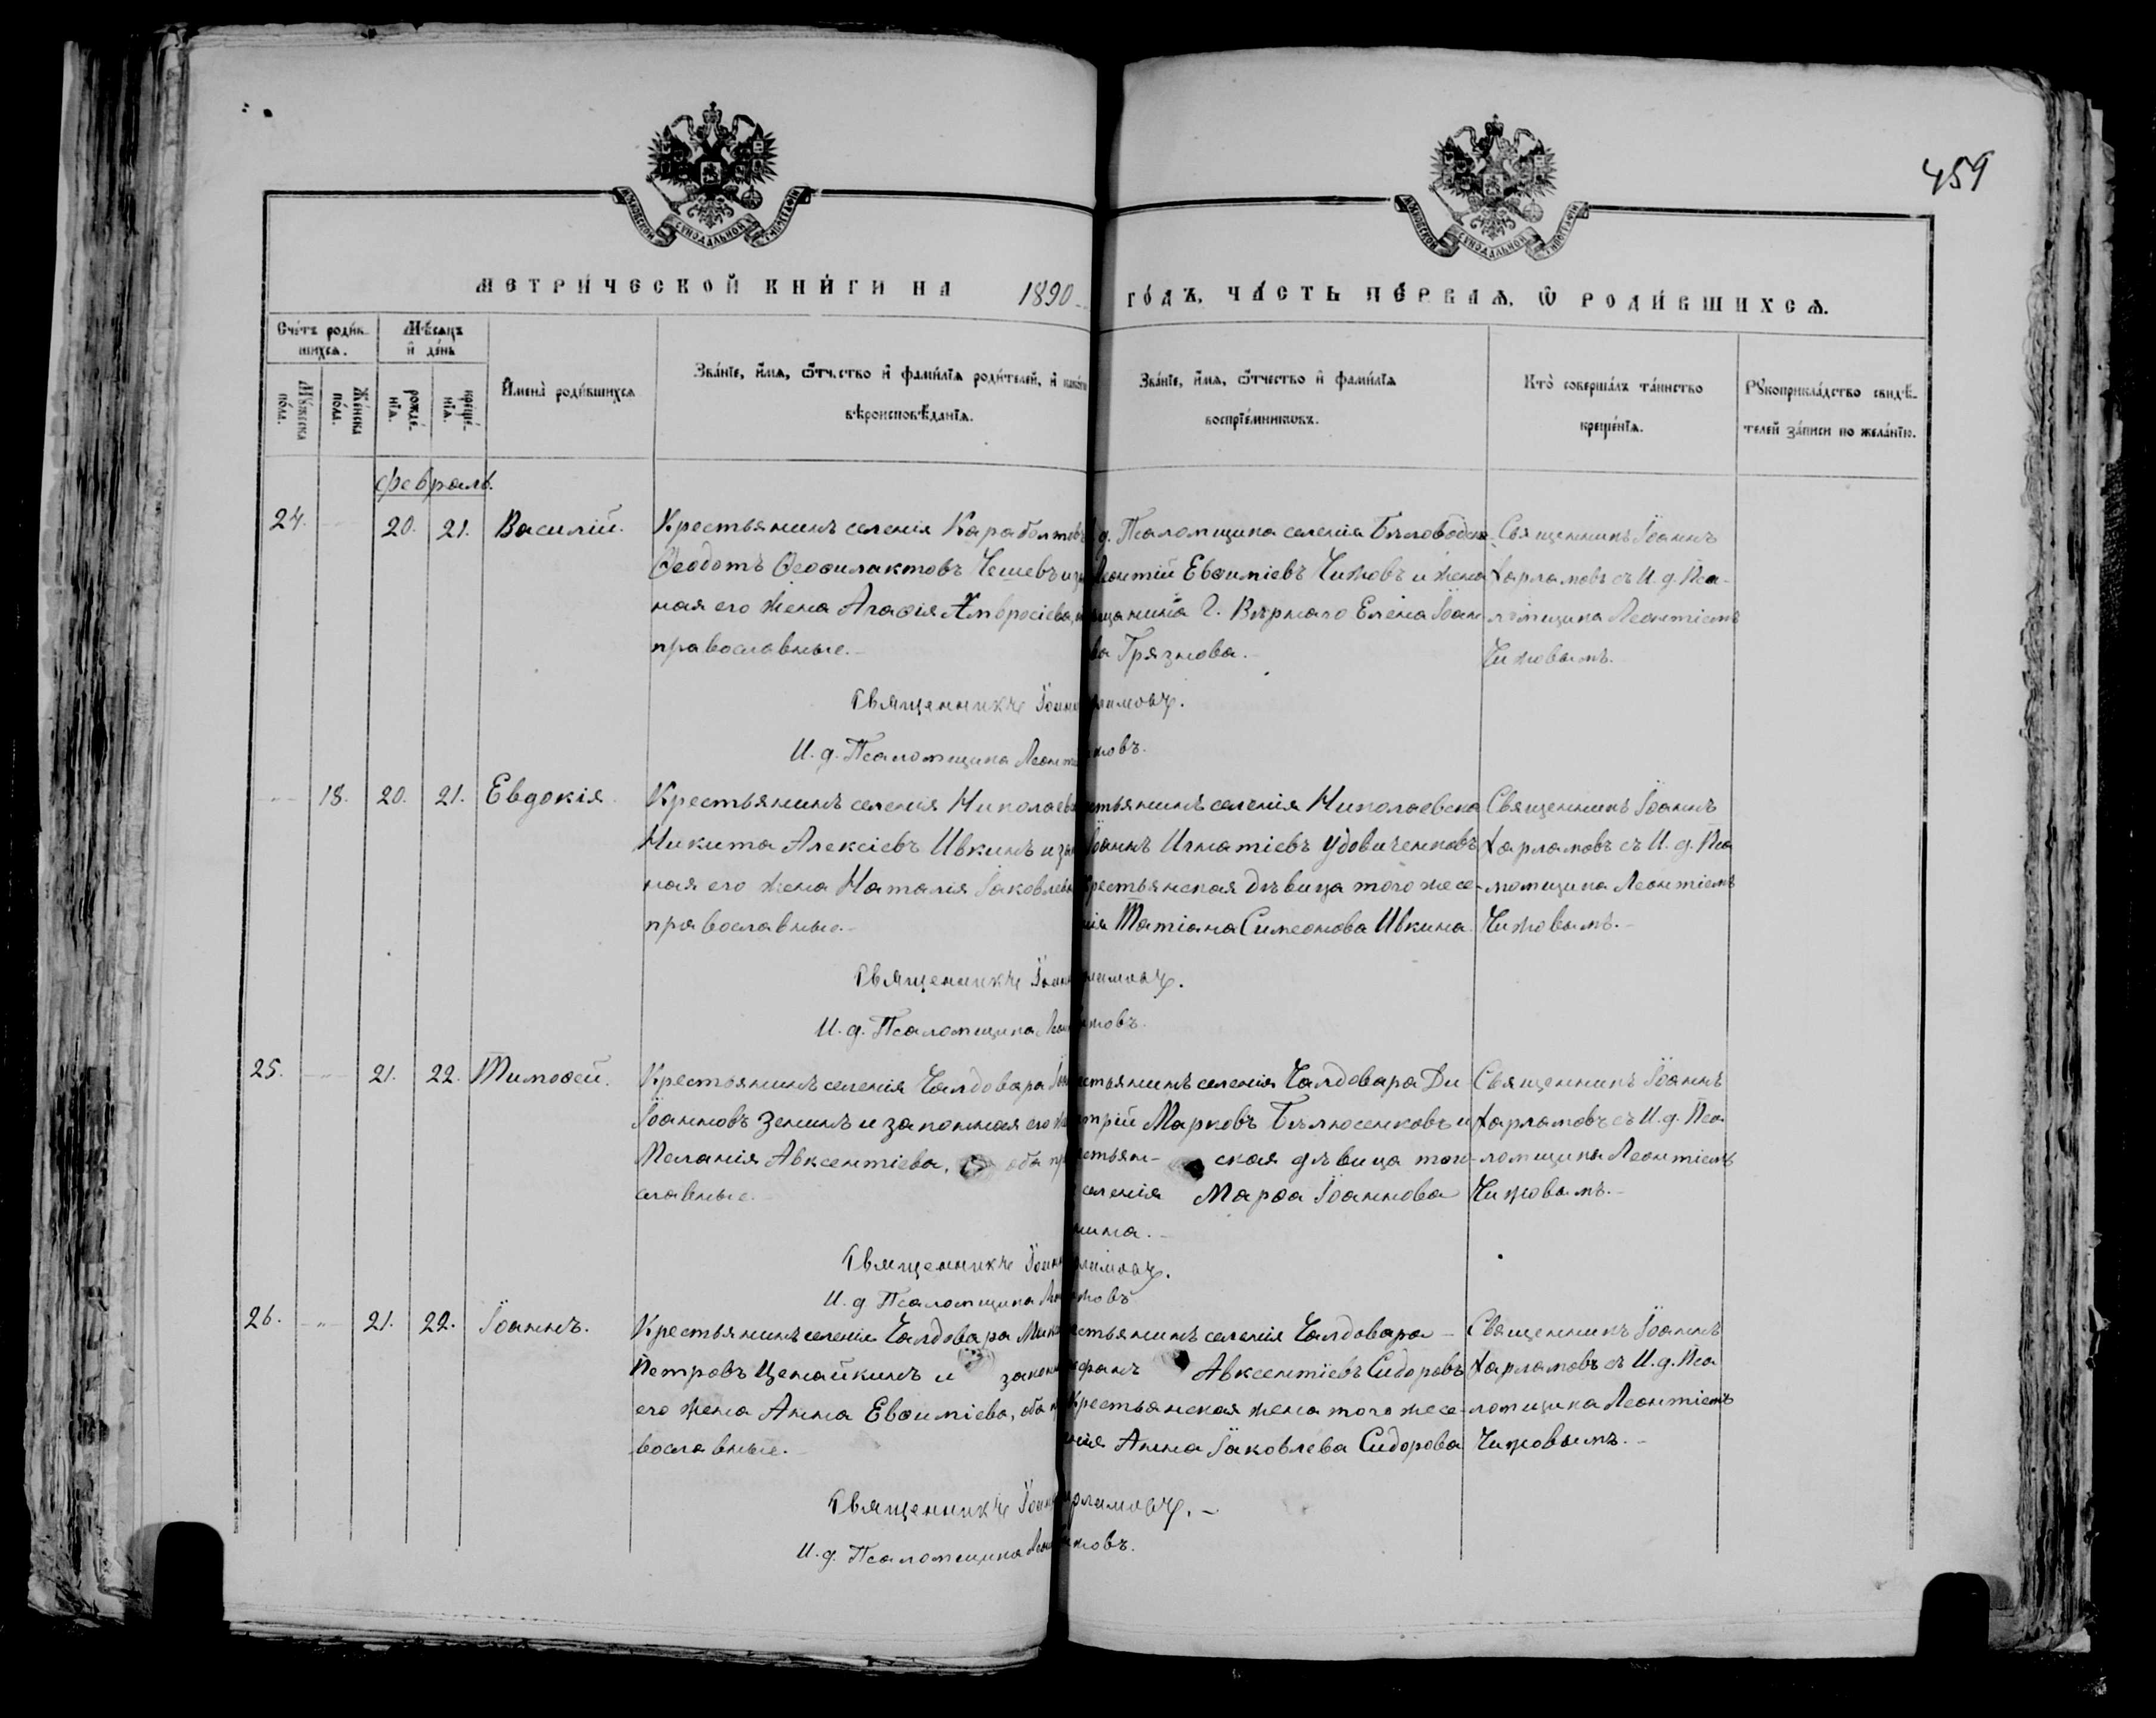 459
МОСКОВСКОЙ СѴНОДАЛЬНОЙ ТИПОГРАФІИ
МОСКОВСКОЙ СѴНОДАЛЬНОЙ ТИПОГРАФІИ
МЕТРИ́ЧЕСКОЙ КНИ́ГИ НА 1890 ГО́ДЪ, ЧА́СТЬ ПЕ́РВАѦ, Ѡ҆ РОДИ́ВШИХСѦ.
Сче́тъ роди́в-
шихсѧ.
Мꙋ́жеска по́ла.
Же́нска по́ла.
Мѣ́сѧцъ
и҆ де́нь
рожде́-
нїѧ.
креще́-
нїѧ.
И҆мена̀ роди́вшихсѧ
Зва́нїе, и҆́мѧ, ѻ҆́тчество и҆ фами́лїѧ роди́телей, и҆
вѣроисповѣ́данїѧ.
Зва́нїе, и҆́мѧ, ѻ҆́тчество и҆ фами́лїѧ
воспрїе́мникѡвъ.
Кто̀ соверша́лъ та́инство
креще́нїѧ.
Рꙋкоприкла́дство свидѣ́-
телей за́писи по жела́нїю.
Февраль.
24. 20. 21. Василій.
Крестьянинъ селенія Караболтовъ
Ѳеодотъ Ѳеофилактовъ Чешевъ и
ная его жена Агаѳія Амвросіева,
православные.
д. Псаломщика селенія Бѣловодска
Леонтій Евѳиміевъ Чижовъ и жена
щанина г. Вѣрнаго Елена Іоан-
ва Грязнова.
Священникъ Іоаннъ
Харламовъ съ И. д. Пса-
ломщика Леонтіемъ
Чижовымъ.
Священникъ
И. д. Псаломщика
18. 20. 21. Евдокія
Крестьянинъ селенія
Никита Алексіевъ Ивкинъ и
ная его жена Наталія Іаковлева
православные.
стьянинъ селенія Николаевска
Іоаннъ Игнатіевъ Удовиченковъ
Крестьянская дѣвица того же се-
нія Татіана Симеонова Ивкина
Священникъ Іоаннъ
Харламовъ съ И. д. Пса
ломщика Леонтіемъ
Чижовымъ.
Священникъ
И. д. Псаломщика
25. 21. 22. Тимоѳей.
Крестьянинъ селенія Чалдовара
Іоанновъ Зенинъ и законная его
Меланія Авксентіева, оба
славные.
стьянинъ селенія Чалдовара Ди
трій Марковъ Бѣлюсенковъ и
стьян- ская дѣвица того-
селенія Марѳа Іоаннова
нина.
Священникъ Іоаннъ
Харламовъ съ И. д. Пса
ломщика Леонтіемъ
Чижовымъ.
Священникъ
И. д. Псаломщика
26. 21. 22. Іоаннъ.
Крестьянинъ селенія Чалдовара
Петровъ Ценайкинъ и
его жена Анна Евѳиміева, оба
вославные.
стьянинъ селенія Чалдовара
фанъ Авксентіевъ Сидоровъ
Крестьянская жена того же се-
нія Анна Іаковлева Сидорова
Священникъ Іоаннъ
Харламовъ съ И. д. Пса
ломщика Леонтіемъ
Чижовымъ.
Священникъ
И. д. Псаломщика